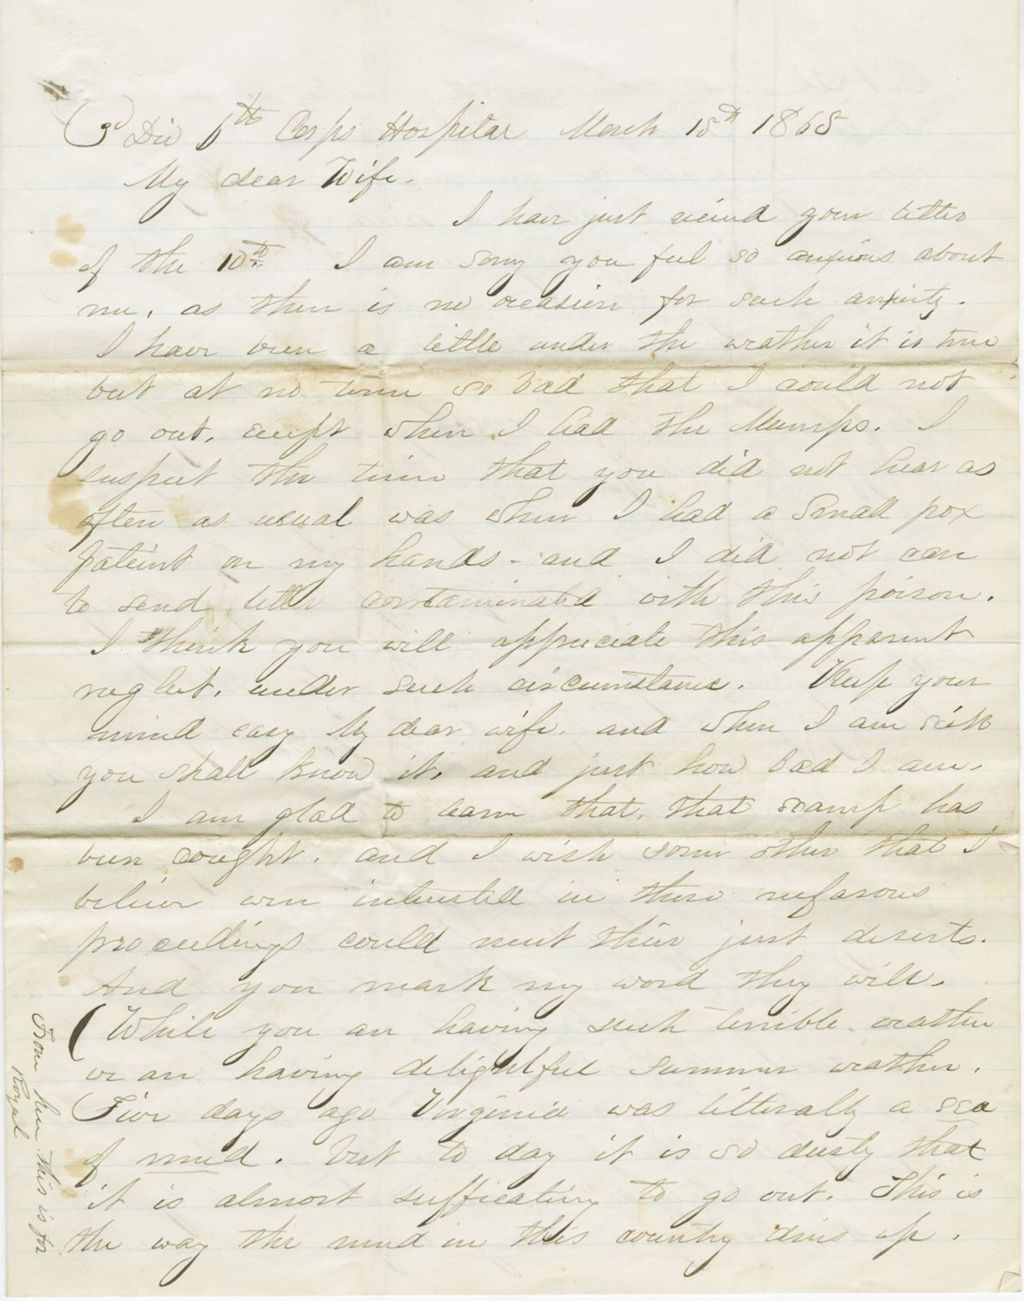 3d Div 6th Corps Hospital March 15th 1865
My dear Wife.
I have just recieved your letter
of the 10th. I am sorry you feel so anxious about
me, as there is no occasion for such anxiety.
I have been a little under the weather it is true
but at no time so bad that I could not
go out, except when I had the Mumps. I
suspect the time that you did not hear as
often as usual was when I had a Small pox
patient on my hands - and I did not care
to send letter contaminated with this poison.
I think you will appreciate this apparent
neglect, under such circumstance. Keep your
mind easy My dear wife, and when I am sick
you shall know it, and just how bad I am.
I am glad to learn that, that scamp has
been caught, and I wish some other that I
believe were interested in these nefarous
proceedings could meet their just deserts.
And you mark my word they will.
(While you are having such terrible weather
we are having delightful summer weather.
Five days ago Virginia was litterally a sea
of mud. but to day it is so dusty that
it is almost sufficating to go out. This is
the way the mud in this country dries up.
From here this is for
Royal